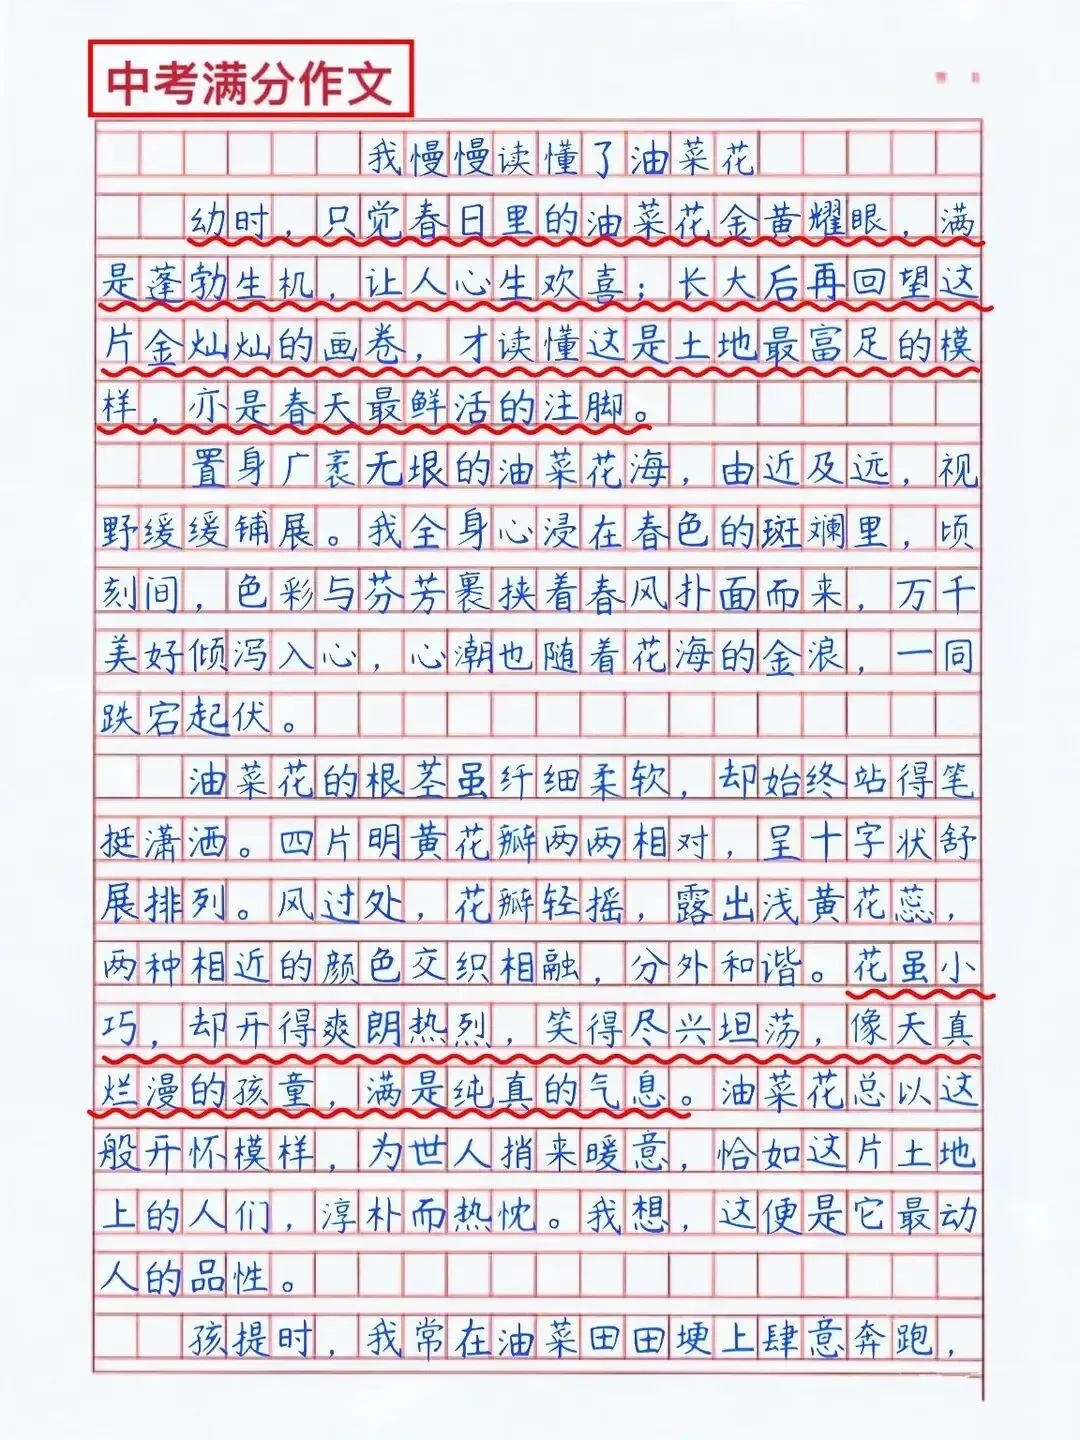 中考满分作文
我慢慢读懂了油菜花
幼时，只觉春日里的油菜花金黄耀眼，满
是蓬勃生机，让人心生欢喜；长大后再回望这
片金灿灿的画卷，才读懂这是土地最富足的模
样，亦是春天最鲜活的注脚。
置身广袤无垠的油菜花海，由近及远，视
野缓缓铺展。我全身心浸在春色的斑斓里，顷
刻间，色彩与芬芳裹挟着春风扑面而来，万千
美好倾泻入心，心潮也随着花海的金浪，一同
跌宕起伏。
油菜花的根茎虽纤细柔软，却始终站得笔
挺潇洒。四片明黄花瓣两两相对，呈十字状舒
展排列。风过处，花瓣轻摇，露出浅黄花蕊，
两种相近的颜色交织相融，分外和谐。花虽小
巧，却开得爽朗热烈，笑得尽兴坦荡，像天真
烂漫的孩童，满是纯真的气息。油菜花总以这
般开怀模样，为世人捎来暖意，恰如这片土地
上的人们，淳朴而热忱。我想，这便是它最动
人的品性。
孩提时，我常在油菜田田埂上肆意奔跑，